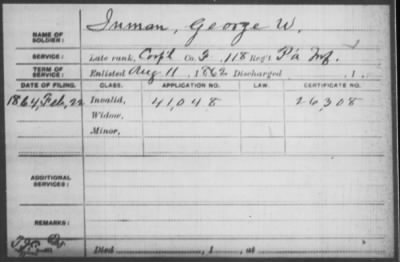 NAME OF SOLDIER: Inman, George W.
SERVICE: Late rank, Corp'l Co. F, 118 Reg't Pa Inf.
TERM OF SERVICE: Enlisted Aug 11, 1862 Discharged , 1 .
DATE OF FILING. CLASS. APPLICATION NO. LAW. CERTIFICATE NO.
1864, Feb, 22 Invalid, 41,048 26,308
Widow,
Minor,
ADDITIONAL SERVICES:
REMARKS:
Died , 1 , at